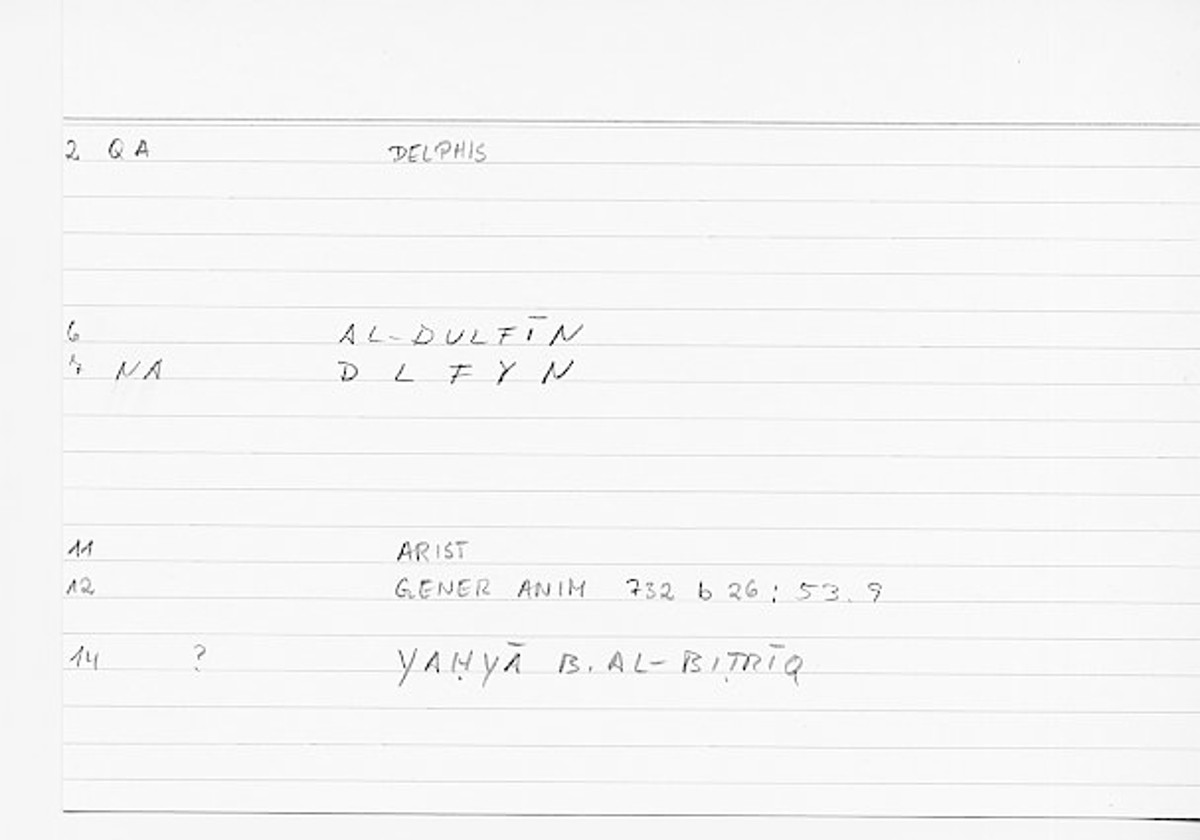 2 QA DELPHIS
6 AL-DULFĪN
7 NA D L F Y N
11 ARIST
12 GENER ANIM 732 b 26 : 53.9
14 ? YAḤYĀ B. AL-BIṬRĪQ